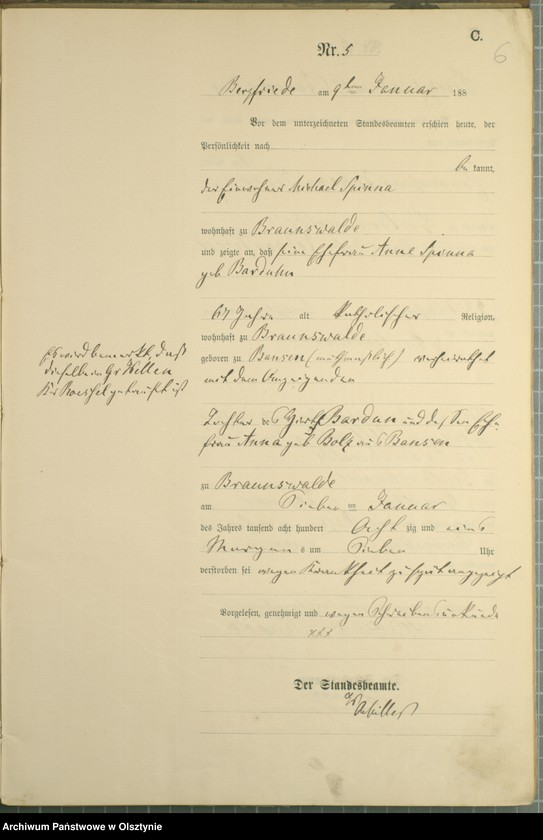 C.
6
Nr. 5
Bergfriede am 9ten Januar 188
Vor dem unterzeichneten Standesbeamten erschien heute, der
Persönlichkeit nach
be kannt,
der Einwohner Michael Spinna
wohnhaft zu Braunswalde
und zeigte an, daß seine Ehefrau Anne Spinna
geb Barduhn
67 Jahre alt katholischer Religion,
wohnhaft zu Braunswalde
geboren zu Bansen (muthmaslich) verheirathet
mit dem Anzeigenden
Es wird bemerkt, daß
dieselbe in Gr Köllen
Kr Roessel getauft ist
Tochter des Bardun und dessen Ehe-
frau Anna geb Bolz aus Bansen
zu Braunswalde
am Sieben ten Januar
des Jahres tausend acht hundert Acht zig und eins
Morgen s um Sieben Uhr
verstorben sei wegen Krankheit zu spät angezeigt
Vorgelesen, genehmigt und wegen Schreibensunkunde
xxx
Der Standesbeamte.
Archiwum Państwowe w Olsztynie